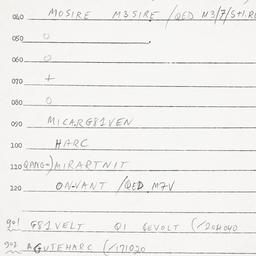 040 MOSIRE M3SIRE /QED N3/7/S+1.RE
050 0
060 0
070 +
080 0
090 MICARG81VEN
100 HARC
110 (QANG=)MIRARTNIT
120 ONVANT /QED M7V
901 G81VELT Q1 GEVOLT (/204040
902 AGUTEHARC (/171020